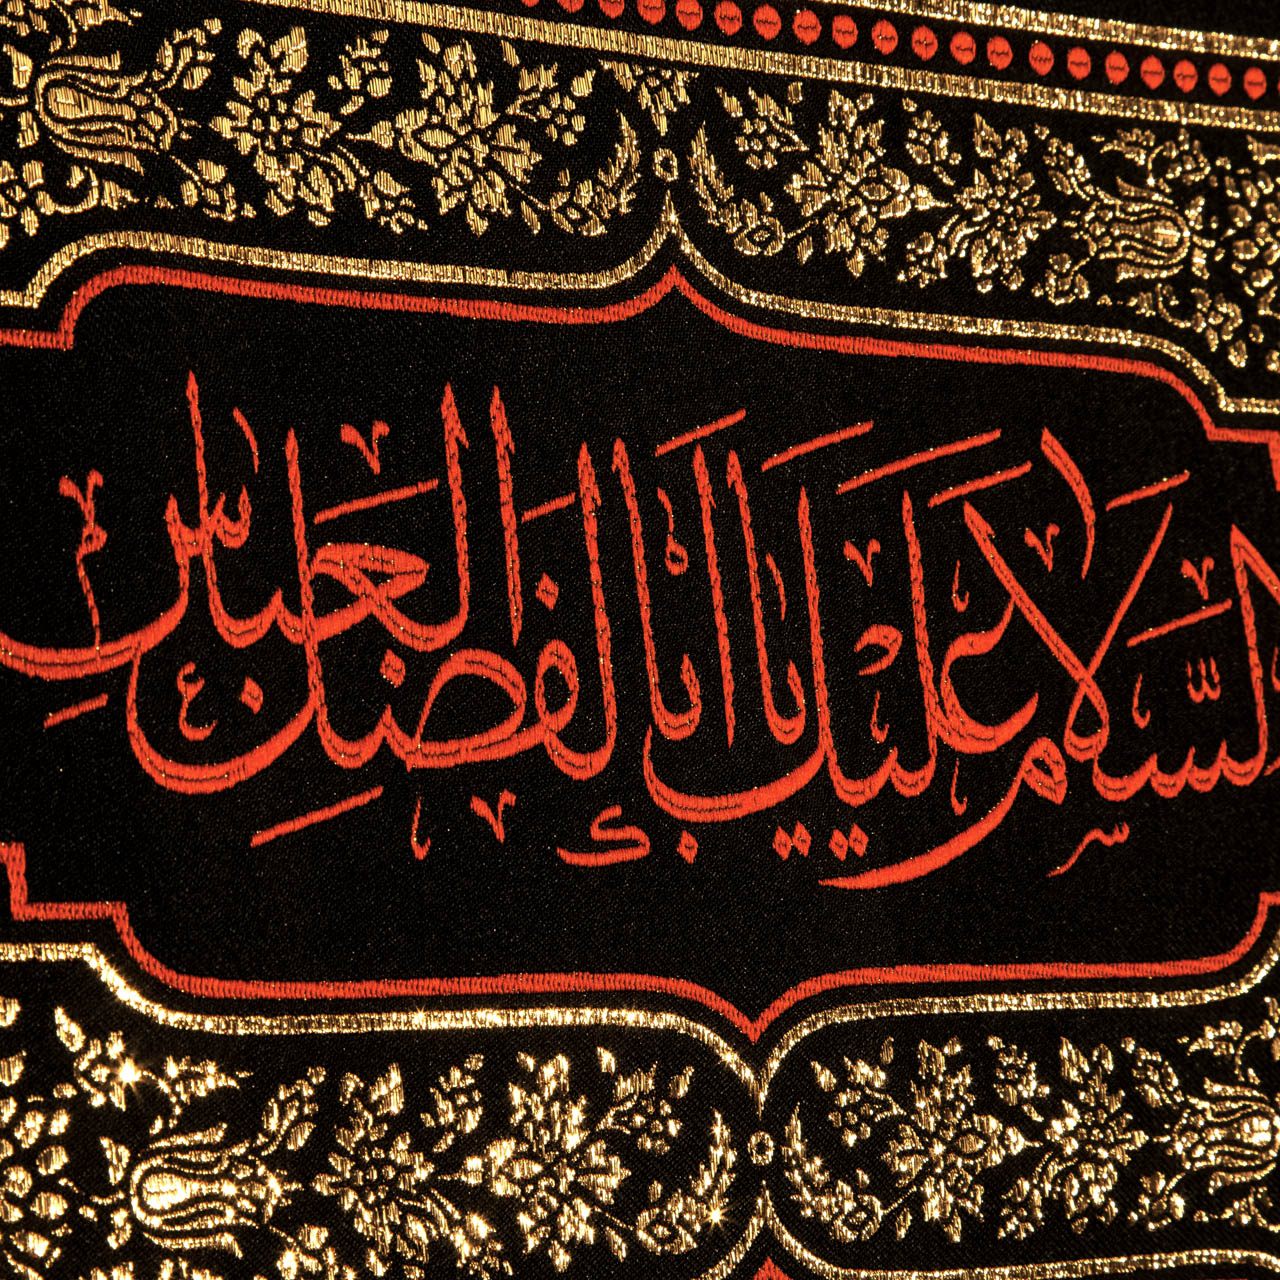 السلام عليك يا أبا الفضل العباس